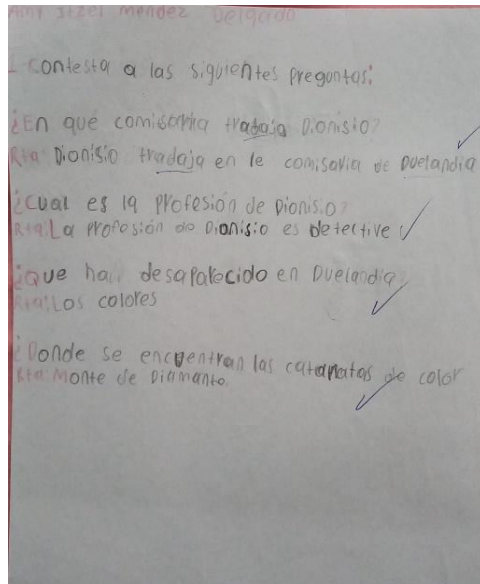 Amy Itzel Mendez Delgado
1-contesta a las siguientes preguntas:
¿En que comisaria tradaja Dionisio?
Rta: Dionisio tradaja en le comisaria de Duelandia
¿Cual es la Profesión de Dionisio?
Rta: La Profesión de Dionisio es detective
¿Que han desaparecido en Duelandia?
Rta: Los colores
¿Donde se encuentran las cataratas de color
Rta: Monte de Diamante.